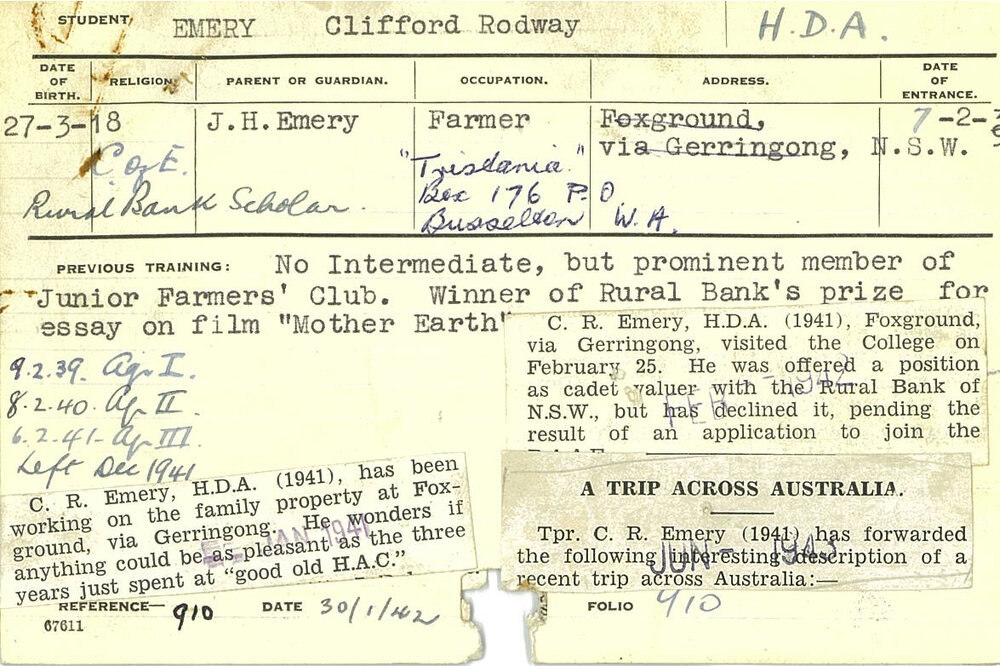 STUDENT, EMERY Clifford Rodway H.D.A.
DATE OF BIRTH. RELIGION. PARENT OR GUARDIAN. OCCUPATION. ADDRESS. DATE OF ENTRANCE.
27-3-18 J.H.Emery Farmer Foxground, 7-2-
C of E. via Gerringong, N.S.W.
"Tristania."
Rural Bank Scholar. Box 176 P.O
Busselton W.A.
PREVIOUS TRAINING: No Intermediate, but prominent member of
Junior Farmers' Club. Winner of Rural Bank's prize for
essay on film "Mother Earth"
9.2.39. Ag. I.
8.2.40. Ag II.
6.2.41- Ag III.
Left Dec 1941
C. R. Emery, H.D.A. (1941), Foxground,
via Gerringong, visited the College on
February 25. He was offered a position
as cadet valuer with the Rural Bank of
N.S.W., but has declined it, pending the
result of an application to join the
FEB - 1942
C. R. Emery, H.D.A. (1941), has been
working on the family property at Fox-
ground, via Gerringong. He wonders if
anything could be as pleasant as the three
years just spent at "good old H.A.C."
JAN 1941
A TRIP ACROSS AUSTRALIA.
Tpr. C. R. Emery (1941) has forwarded
the following interesting description of a
recent trip across Australia:—
JUN - 1943
REFERENCE— 910 DATE 30/1/42 FOLIO 910
67611